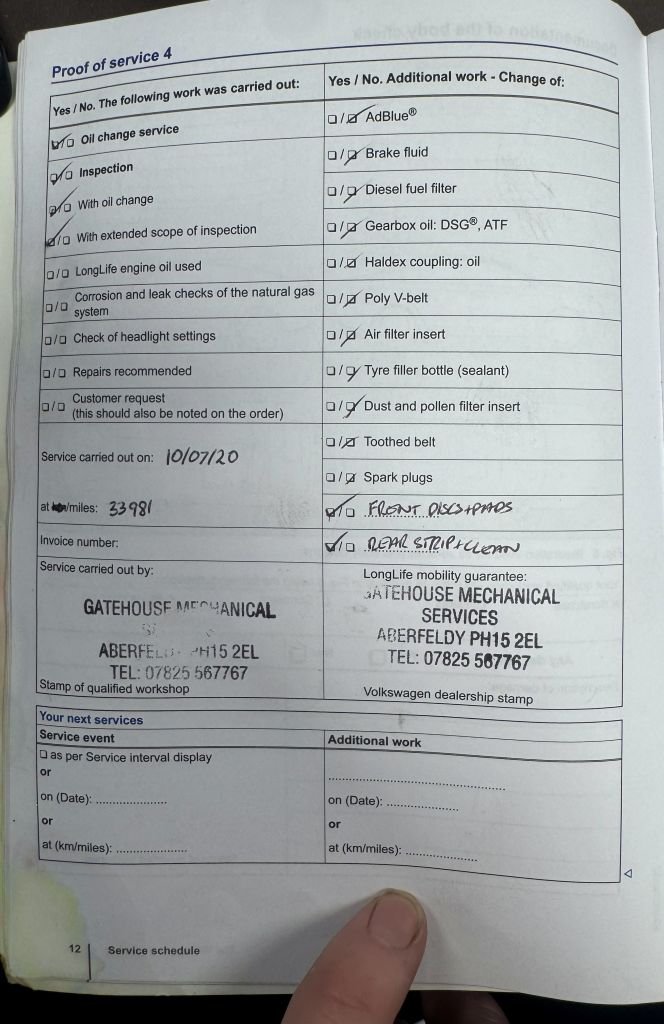 Proof of service 4
Yes / No. The following work was carried out:
☑/☐ Oil change service
☑/☐ Inspection
☑/☐ With oil change
☑/☐ With extended scope of inspection
☐/☐ LongLife engine oil used
☐/☐ Corrosion and leak checks of the natural gas
system
☐/☐ Check of headlight settings
☐/☐ Repairs recommended
☐/☐ Customer request
(this should also be noted on the order)
Service carried out on: 10/07/20
at km/miles: 33981
Invoice number:
Service carried out by:
GATEHOUSE MECHANICAL
ABERFEL PH15 2EL
TEL: 07825 567767
Stamp of qualified workshop
Yes / No. Additional work - Change of:
☐/☑ AdBlue®
☐/☑ Brake fluid
☐/☑ Diesel fuel filter
☐/☑ Gearbox oil: DSG®, ATF
☐/☑ Haldex coupling: oil
☐/☑ Poly V-belt
☐/☑ Air filter insert
☐/☑ Tyre filler bottle (sealant)
☐/☑ Dust and pollen filter insert
☐/☑ Toothed belt
☐/☑ Spark plugs
☑/☐ FRONT DISCS+PADS
☑/☐ REAR STRIP+CLEAN
LongLife mobility guarantee:
GATEHOUSE MECHANICAL
SERVICES
ABERFELDY PH15 2EL
TEL: 07825 567767
Volkswagen dealership stamp
Your next services
Service event
☐ as per Service interval display
or
on (Date): ....................
or
at (km/miles): ....................
Additional work
..................................................
on (Date): ....................
or
at (km/miles): ....................
12 Service schedule